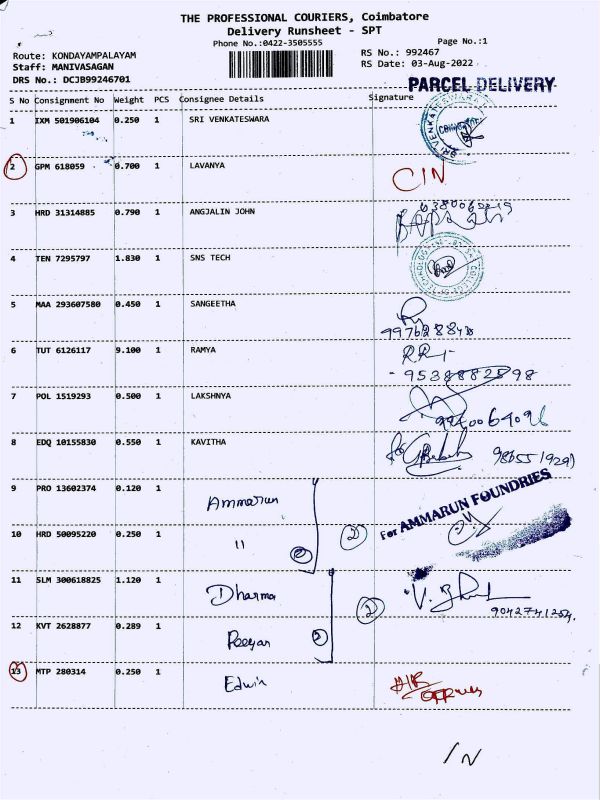 THE PROFESSIONAL COURIERS, Coimbatore
Delivery Runsheet - SPT
Phone No.:0422-3505555 Page No.:1
Route: KONDAYAMPALAYAM RS No.: 992467
Staff: MANIVASAGAN RS Date: 03-Aug-2022
DRS No.: DCJB99246701
PARCEL DELIVERY
S No Consignment No Weight PCS Consignee Details Signature
1 IXM 501906104 0.250 1 SRI VENKATESWARA
2 GPM 618059 0.700 1 LAVANYA CIN
3 HRD 31314885 0.790 1 ANGJALIN JOHN
4 TEN 7295797 1.830 1 SNS TECH
5 MAA 293607580 0.450 1 SANGEETHA
6 TUT 6126117 9.100 1 RAMYA
7 POL 1519293 0.500 1 LAKSHNYA
8 EDQ 10155830 0.550 1 KAVITHA
9 PRO 13602374 0.120 1 Ammarun
For AMMARUN FOUNDRIES
10 HRD 50095220 0.250 1 11 2 2
11 SLM 300618825 1.120 1 Dharma 2
12 KVT 2628877 0.289 1 2
13 MTP 280314 0.250 1 Edwin
IN